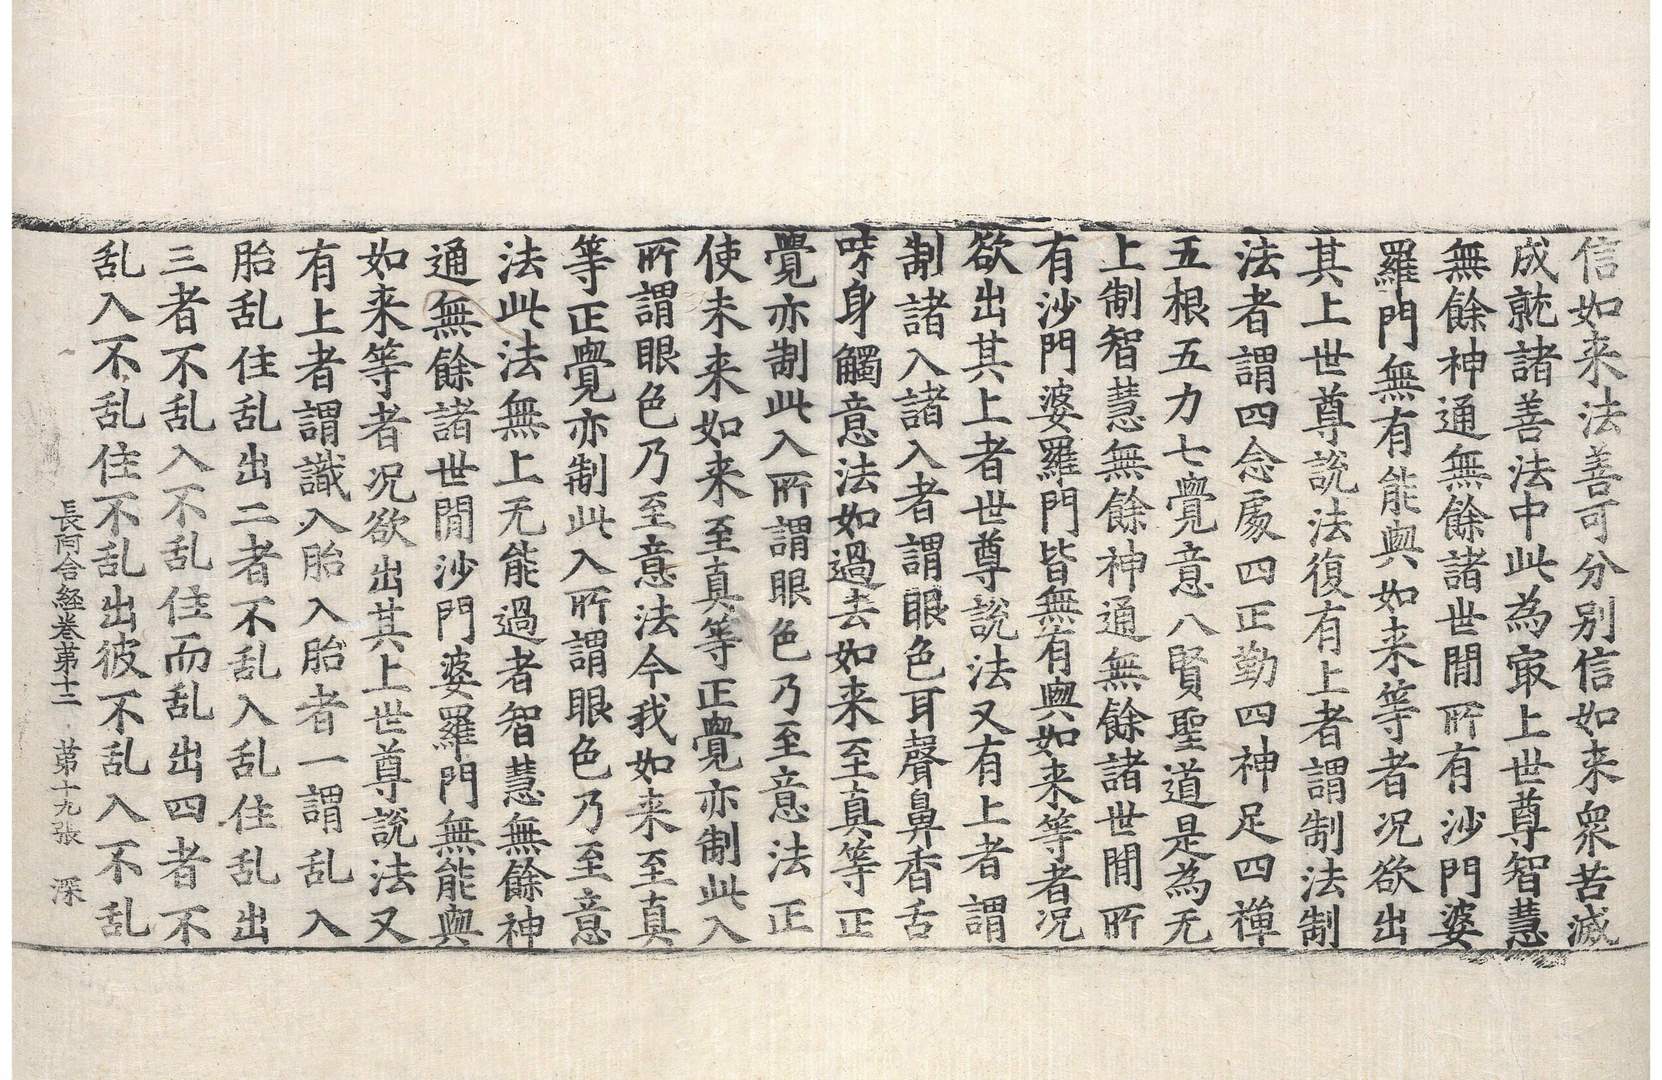 信如来法善可分別信如来衆苦滅
成就諸善法中此為㝡上世尊智慧
無餘神通無餘諸世間所有沙門婆
羅門無有能與如来等者况欲出
其上世尊說法復有上者謂制法制
法者謂四念處四正勤四神足四禪
五根五力七覺意八賢聖道是為无
上制智慧無餘神通無餘諸世間所
有沙門婆羅門皆無有與如来等者况
欲出其上者世尊說法又有上者謂
制諸入諸入者謂眼色耳聲鼻香舌
味身觸意法如過去如来至真等正
覺亦制此入所謂眼色乃至意法正
使未来如来至真等正覺亦制此入
所謂眼色乃至意法今我如来至真
等正覺亦制此入所謂眼色乃至意
法此法無上无能過者智慧無餘神
通無餘諸世間沙門婆羅門無能與
如来等者况欲出其上世尊說法又
有上者謂識入胎入胎者一謂乱入
胎乱住乱出二者不乱入乱住乱出
三者不乱入不乱住而乱出四者不
乱入不乱住不乱出彼不乱入不乱
長阿含経卷苐十二 苐十九張 深